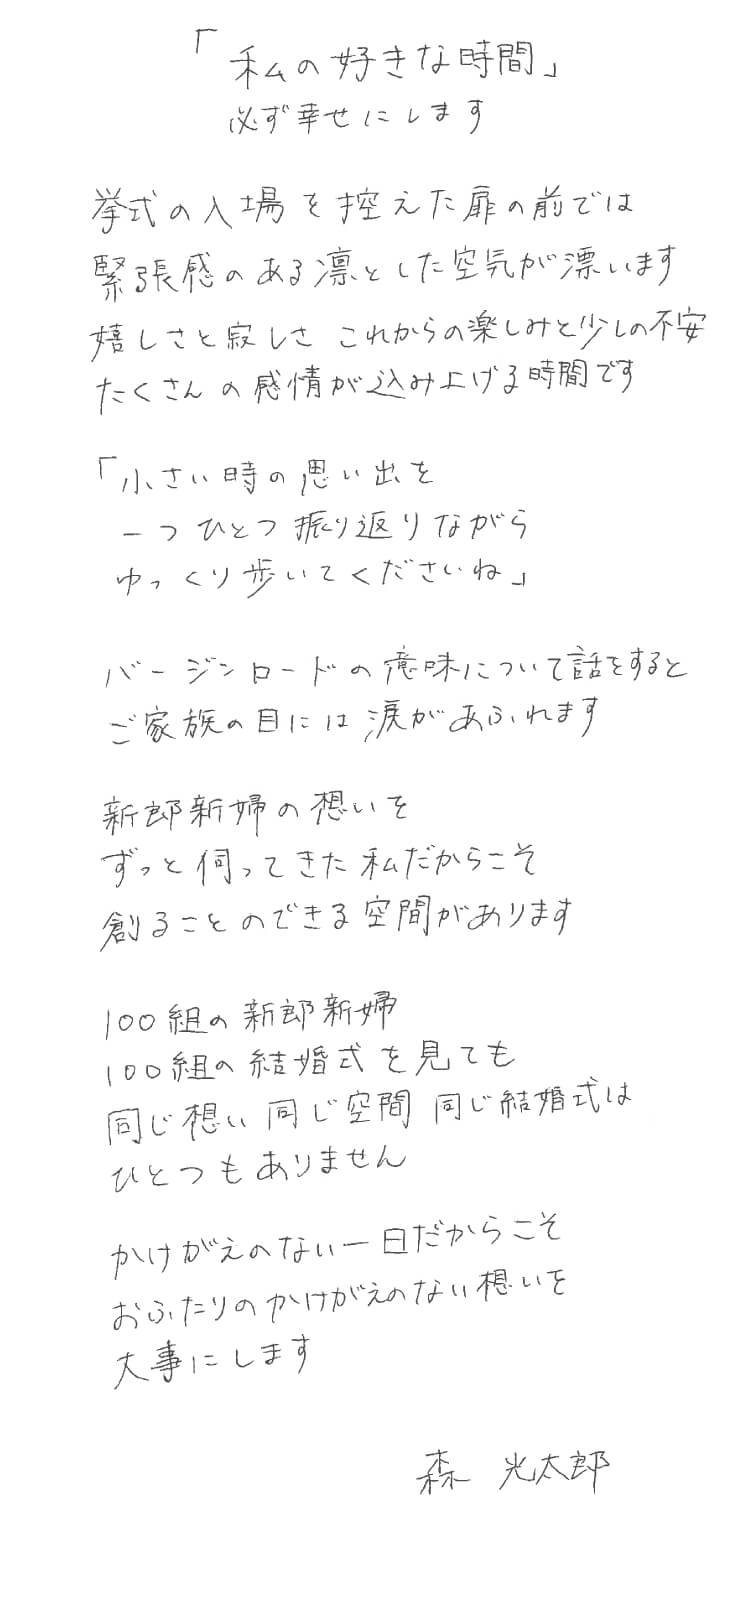 「私の好きな時間」
必ず幸せにします
挙式の入場を控えた扉の前では
緊張感のある凛とした空気が漂います
嬉しさと寂しさ これからの楽しみと少しの不安
たくさんの感情が込み上げる時間です
「小さい時の思い出を
一つひとつ振り返りながら
ゆっくり歩いてくださいね」
バージンロードの意味について話をすると
ご家族の目には涙があふれます
新郎新婦の想いを
ずっと伺ってきた私だからこそ
創ることのできる空間があります
100組の新郎新婦
100組の結婚式を見ても
同じ想い 同じ空間 同じ結婚式は
ひとつもありません
かけがえのない一日だからこそ
おふたりのかけがえのない想いを
大事にします
森 光太郎